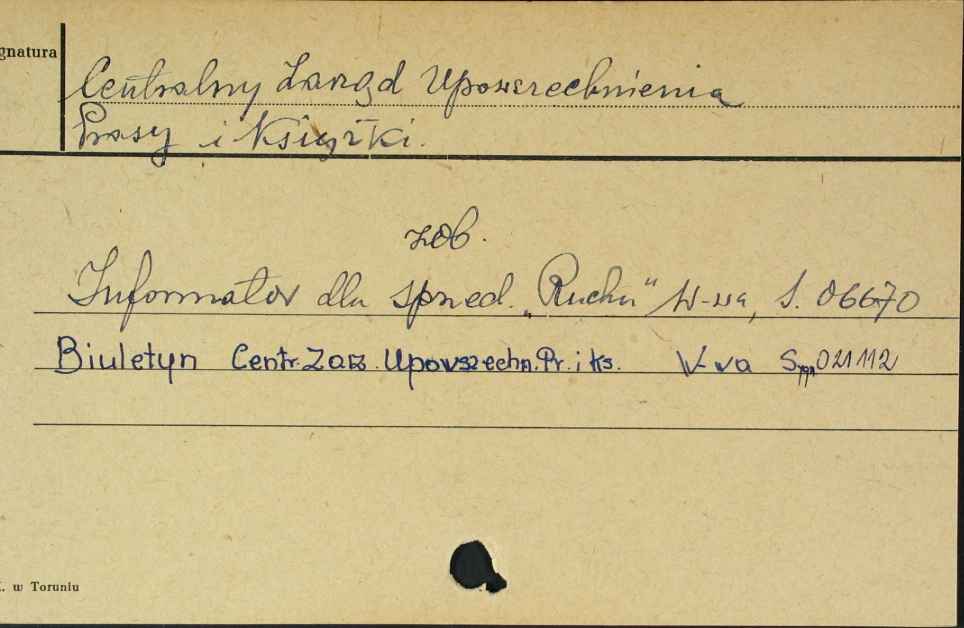 gnatura
Centralny Zarząd Upowszechnienia
Prasy i Książki.
zob.
Informator dla sprzed. „Ruchu" W-wa, S. 06670
Biuletyn Centr. Zarz. Upowszechn. Pr. i Ks. W-wa 021112
. w Toruniu